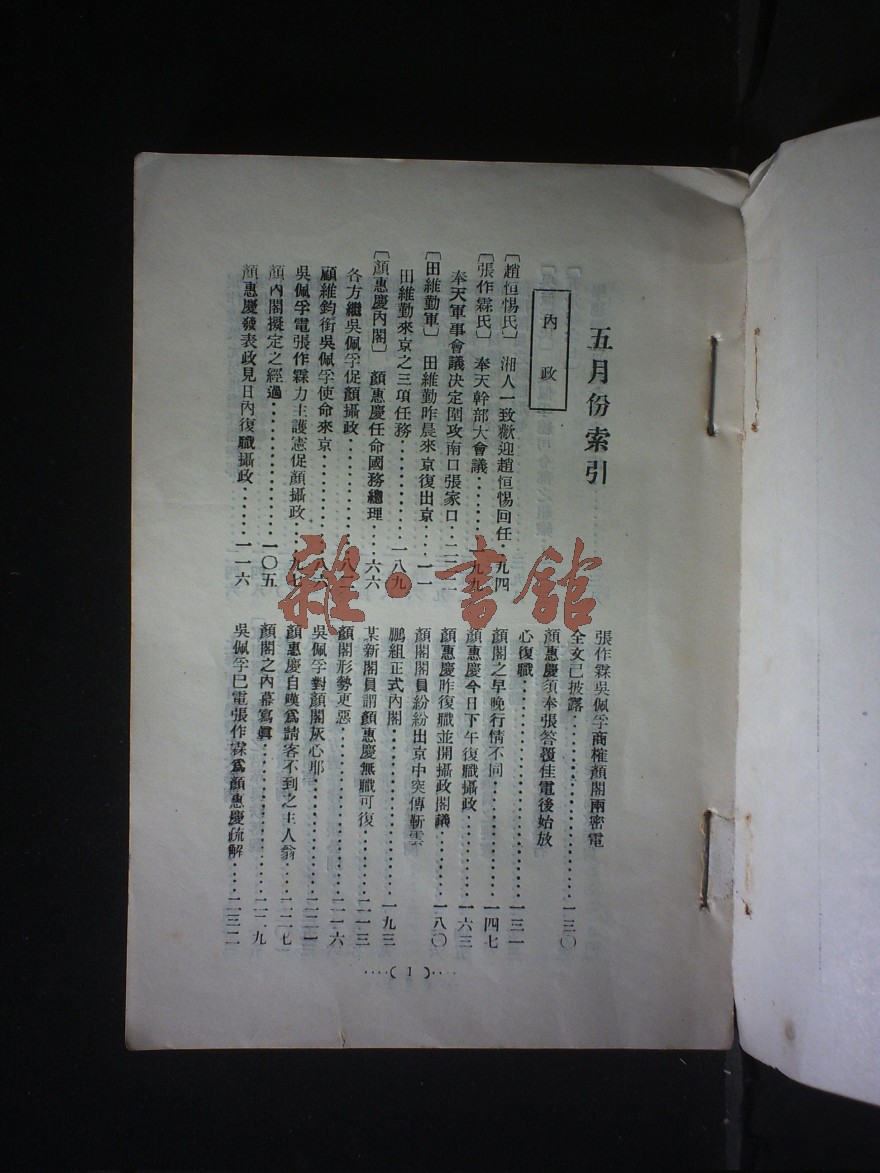 五月份索引
內政
〔趙恒惕氏〕 湘人一致歡迎趙恒惕回任・・九四
〔張作霖氏〕 奉天幹部大會議・・・・・・・九九
奉天軍事會議決定圍攻南口張家口・二二二
〔田維勤軍〕 田維勤昨晨來京復出京・・・一一
田維勤來京之三項任務・・・・・・・・一八九
〔顏惠慶內閣〕 顏惠慶任命國務總理・・・六六
各方繼吳佩孚促顏攝政・・・・・・・・・八二
顧維鈞銜吳佩孚使命來京・・・・・・・・八六
吳佩孚電張作霖力主護憲促顏攝政・・・・九七
顏內閣擬定之經過・・・・・・・・・・一〇五
顏惠慶發表政見日內復職攝政・・・・・一一六
張作霖吳佩孚商榷顏閣兩密電
全文已披露・・・・・・・・・・・・・一三〇
顏惠慶須奉張答覆佳電後始放
心復職・・・・・・・・・・・・・・・一三一
顏閣之早晚行情不同・・・・・・・・・一四七
顏惠慶今日下午復職攝政・・・・・・・一六三
顏惠慶昨復職並開攝政閣議・・・・・・一八〇
顏閣閣員紛紛出京中突傳靳雲
鵬組正式內閣・・・・・・・・・・・・一九三
某新閣員謂顏惠慶無職可復・・・・・・二一三
顏閣形勢更惡・・・・・・・・・・・・二一六
吳佩孚對顏閣灰心耶・・・・・・・・・二二一
顏惠慶自嘆爲請客不到之主人翁・・・・二二七
顏閣之內幕寫眞・・・・・・・・・・・二二九
吳佩孚巳電張作霖爲顏惠慶疏解・・・・二三二
・・・・( 1 )・・・・
雜・書館